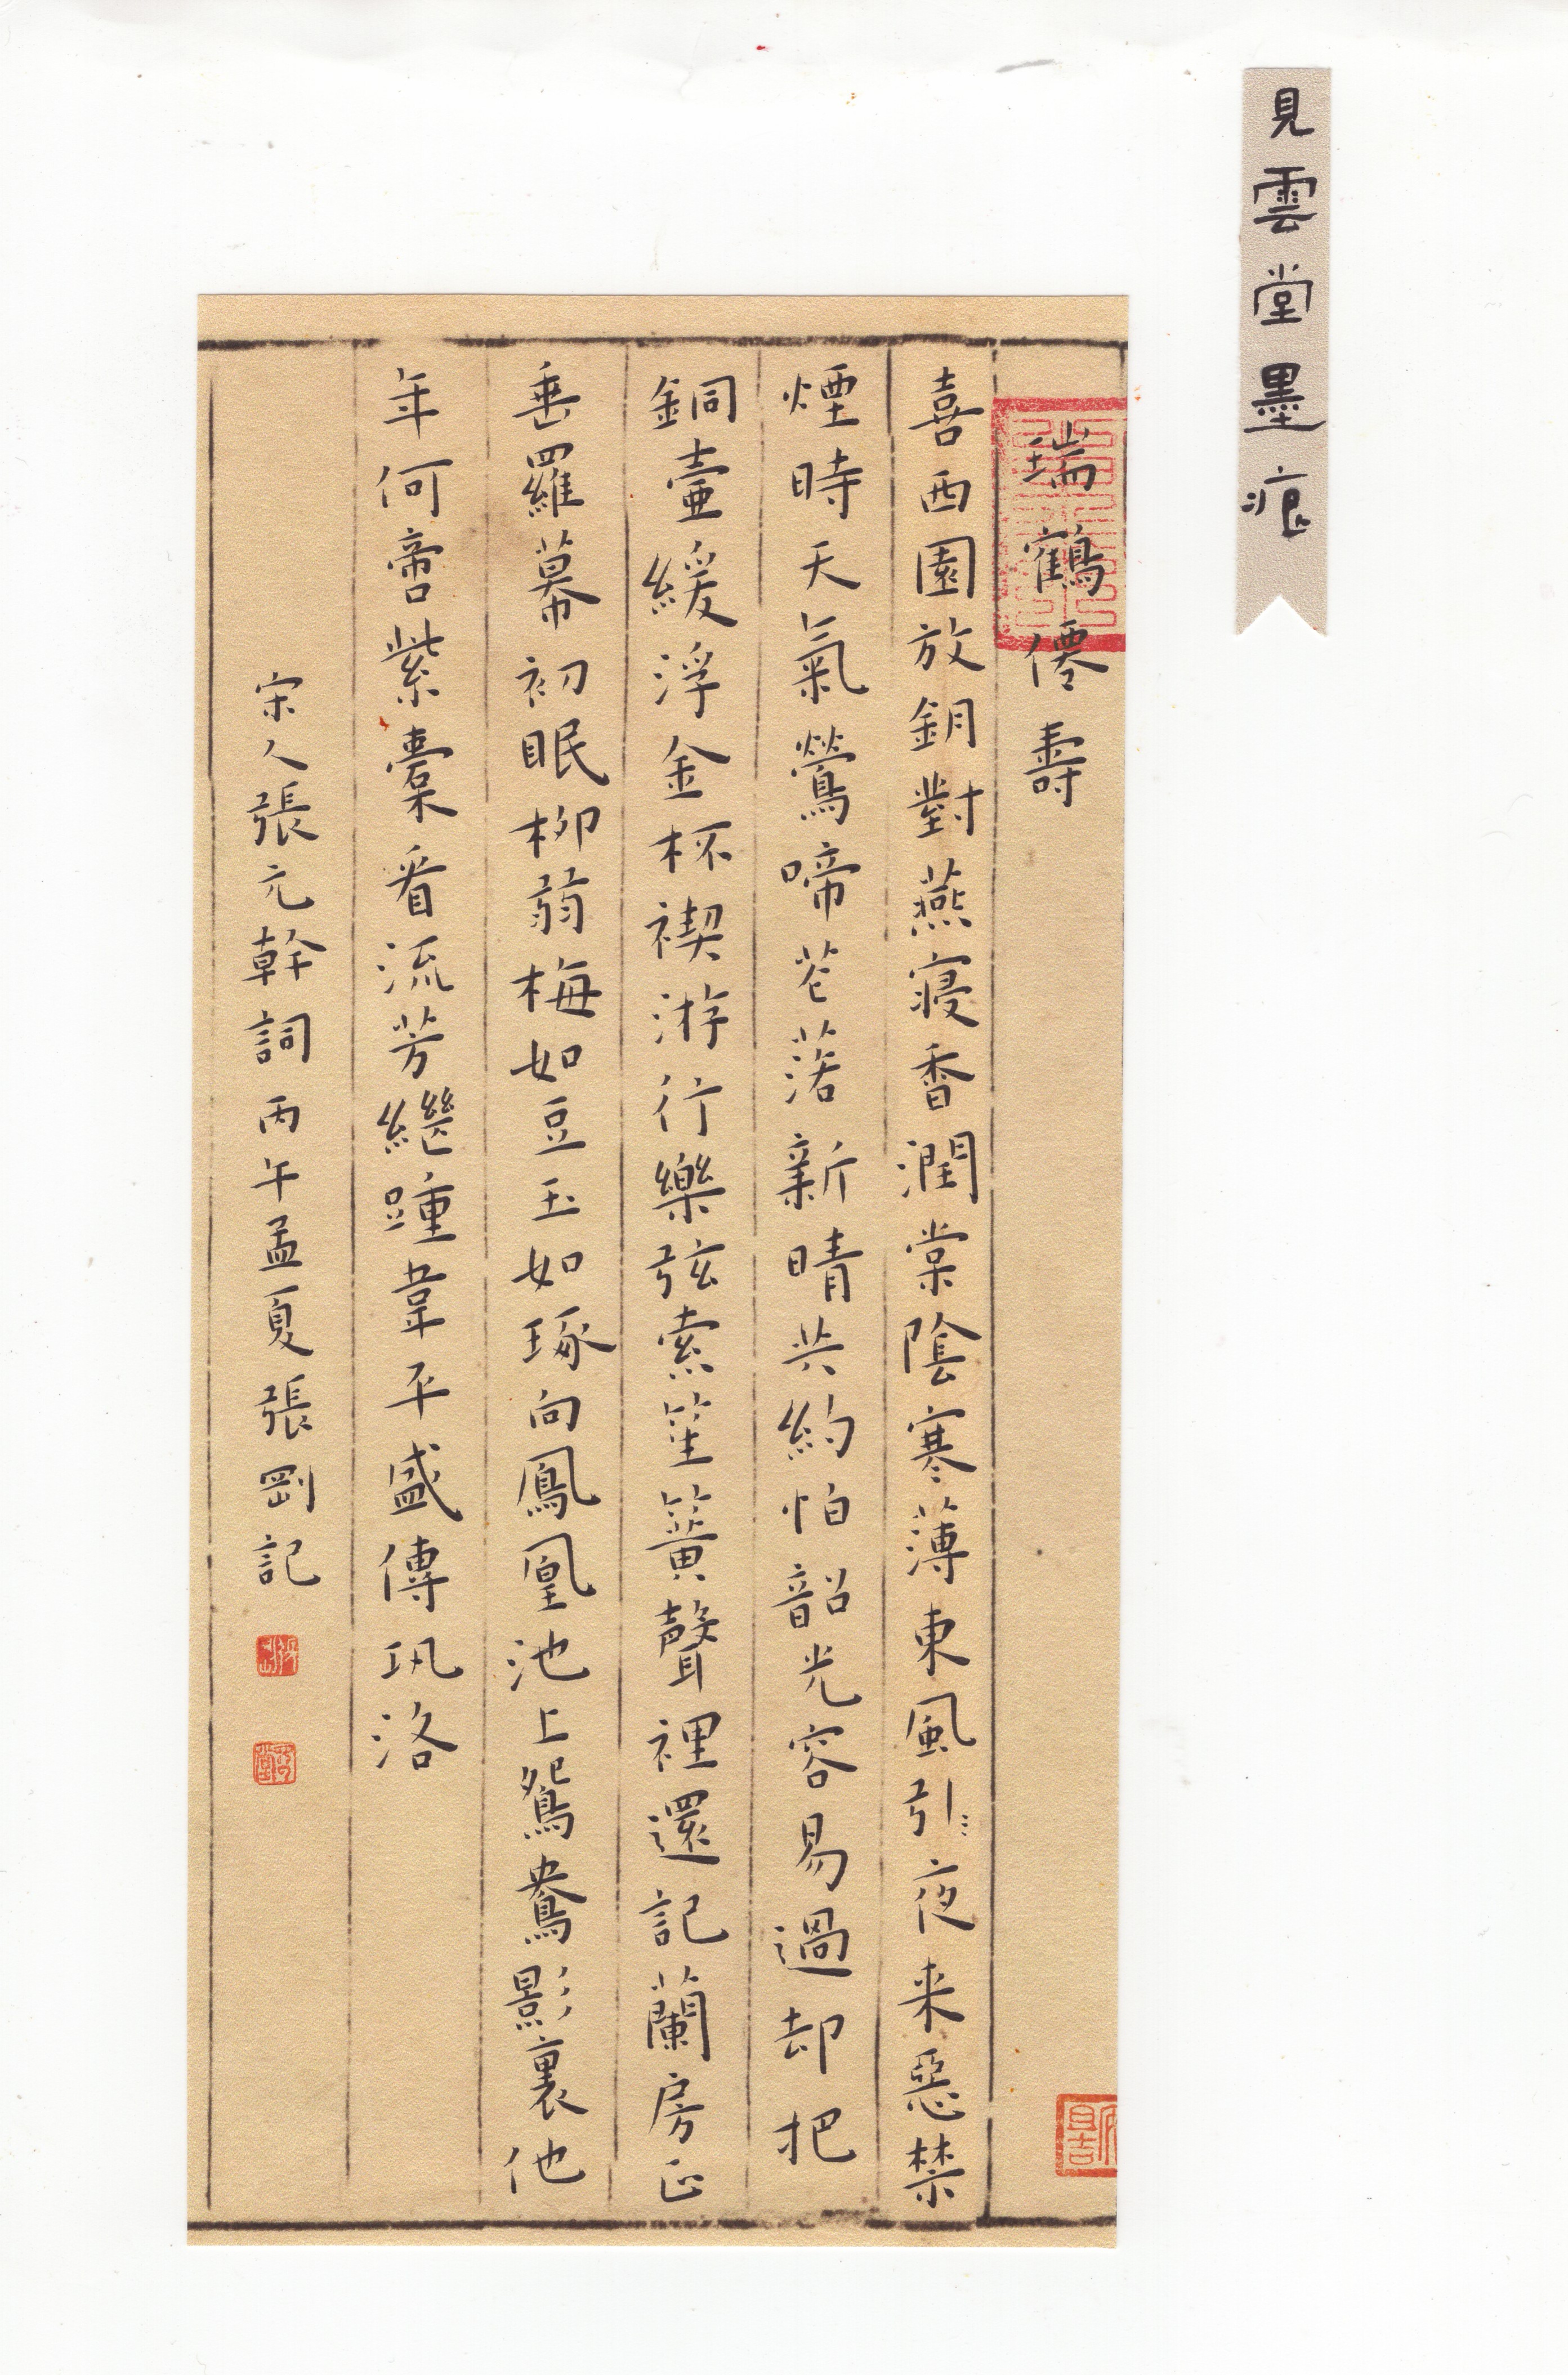 見雲堂墨痕
瑞鶴僊壽
喜西園放鑰對燕寢香潤棠陰寒薄東風引夜来惡禁
煙時天氣鶯啼芲落新晴共約怕韶光容易過却把
銅壷緩浮金杯禊游行樂弦索笙簧聲裡還記蘭房正
垂羅幕初眠柳弱梅如豆玉如琢向鳳凰池上鴛鴦影裏他
年何啻紫橐看流芳繼踵韋平盛傳巩洛
宋人張元幹詞丙午孟夏張剛記